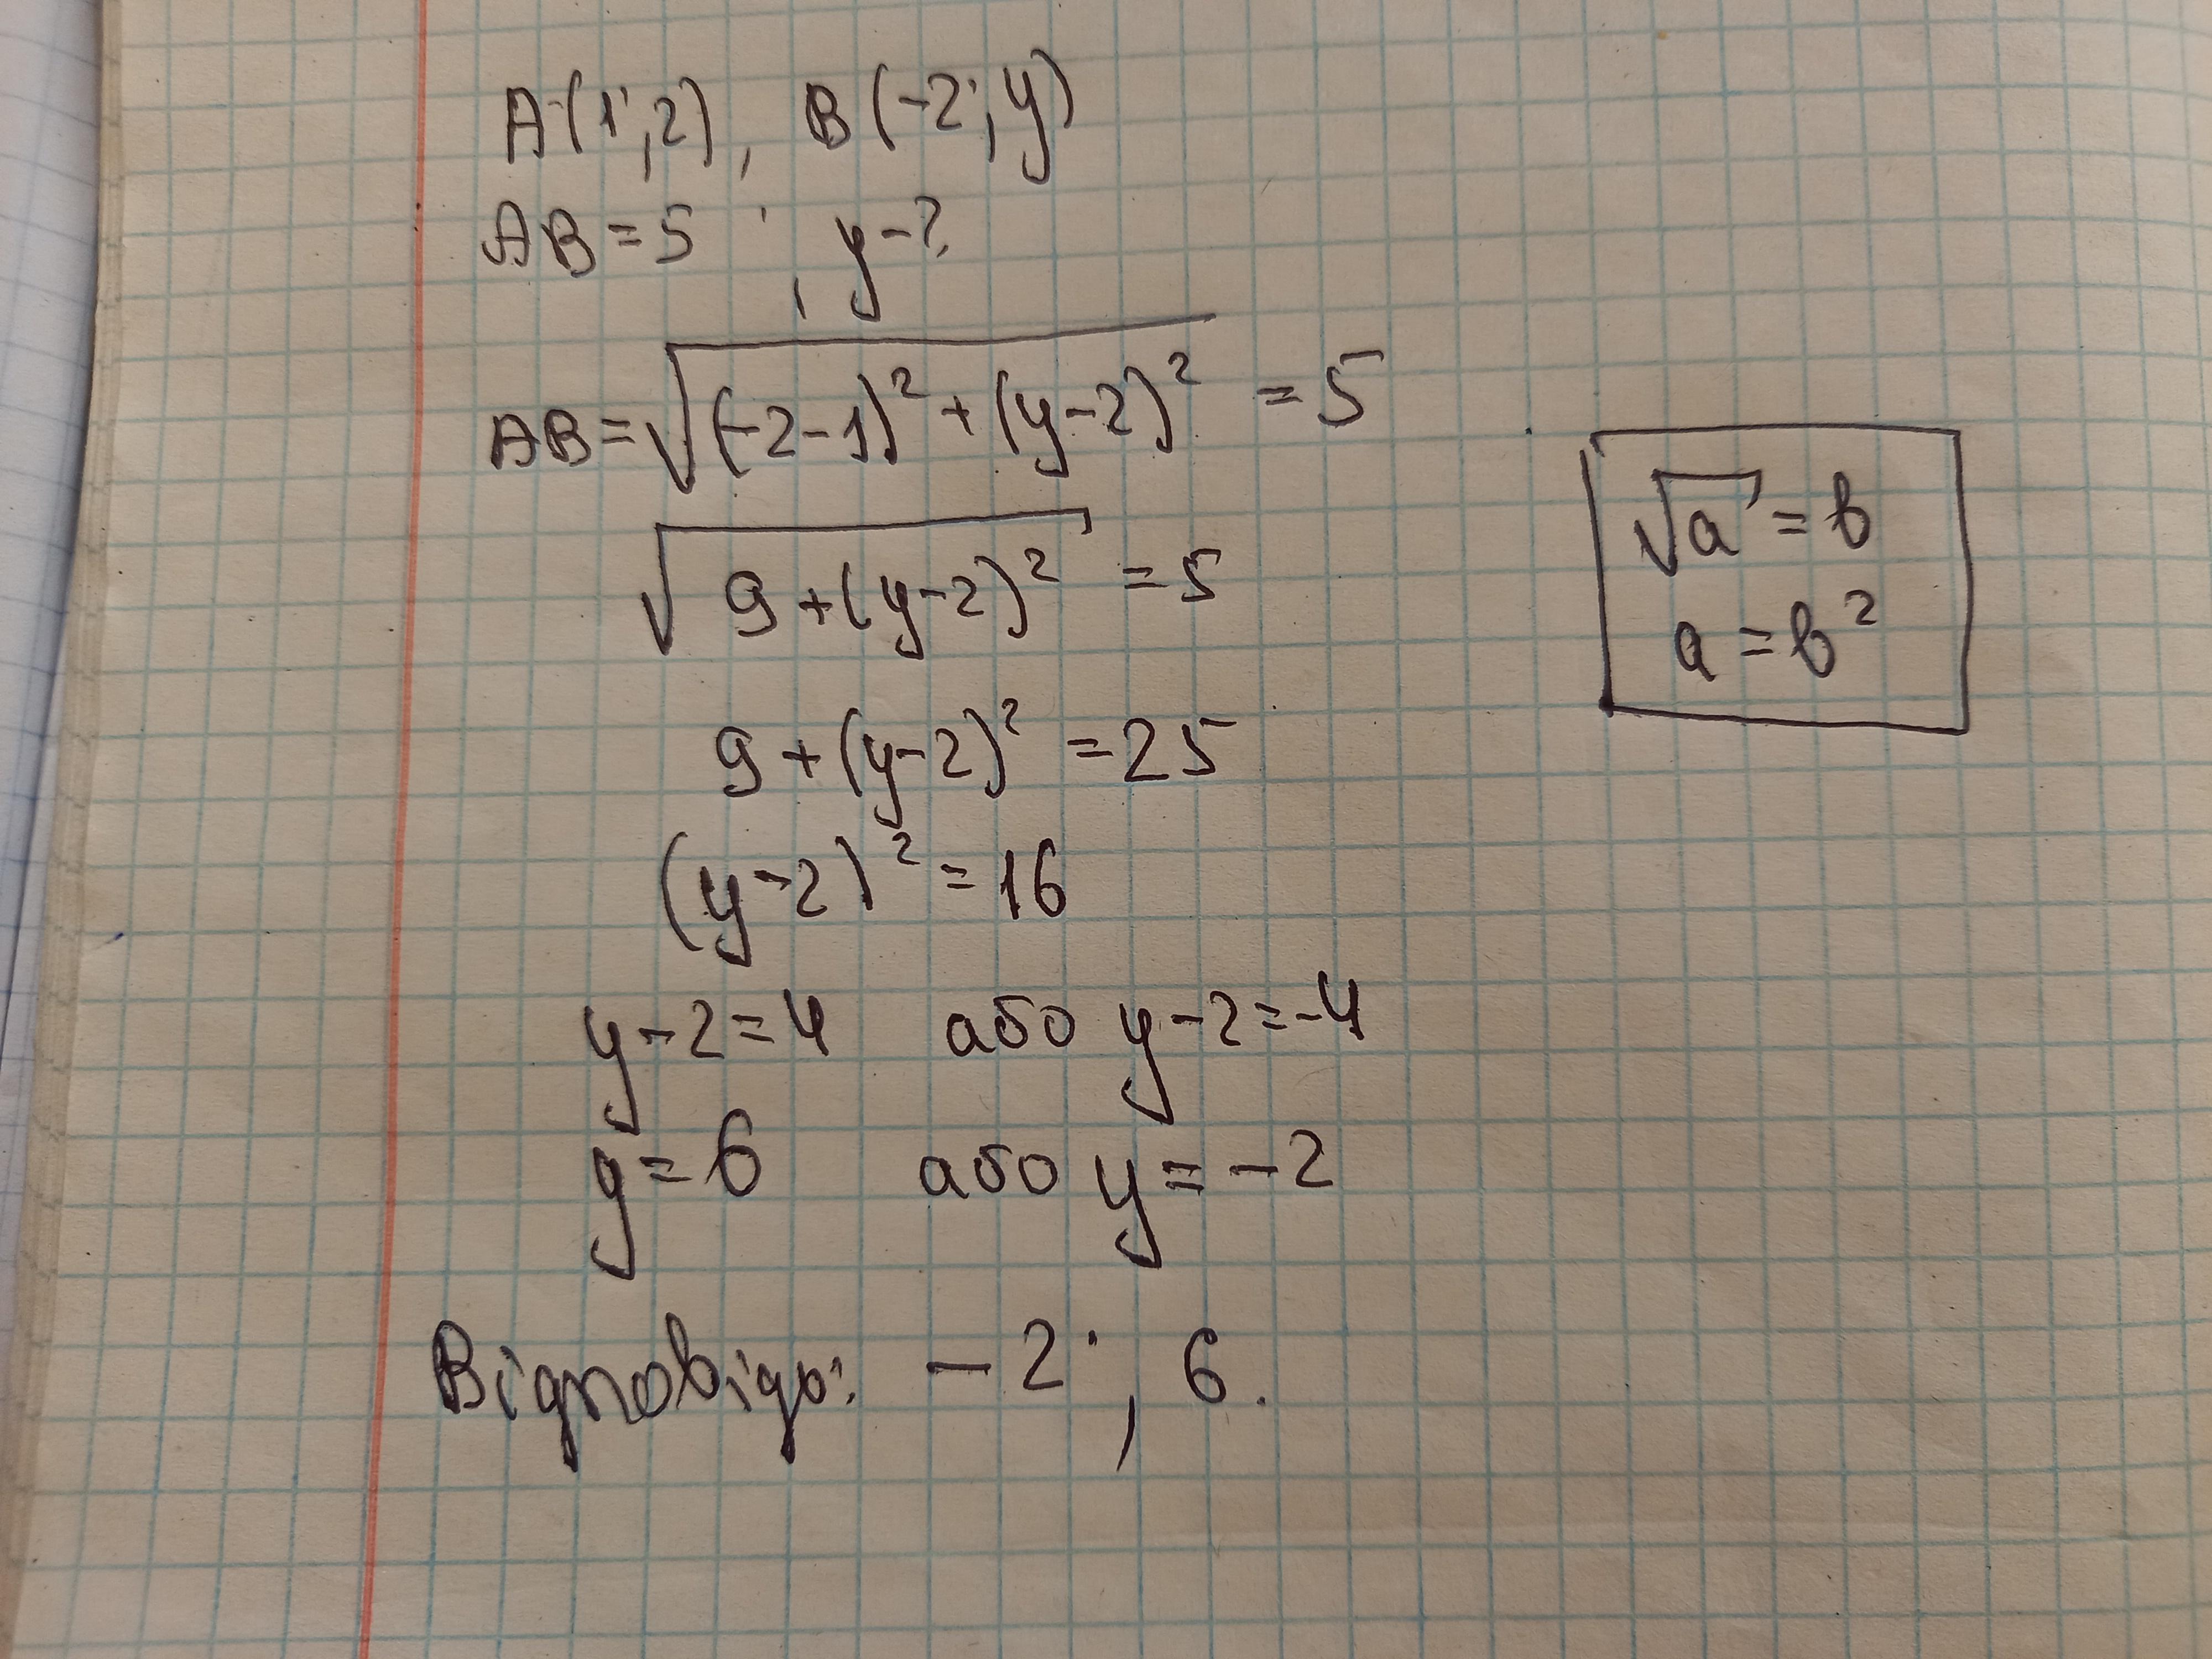 A(1;2), B(-2;y)
AB=5 ; y-?
AB=√((-2-1)²+(y-2)²) =5
√(9+(y-2)²) =5
9+(y-2)²=25
(y-2)²=16
y-2=4 або y-2=-4
y=6 або y=-2
Відповідь: -2; 6.
√a=b
a=b²